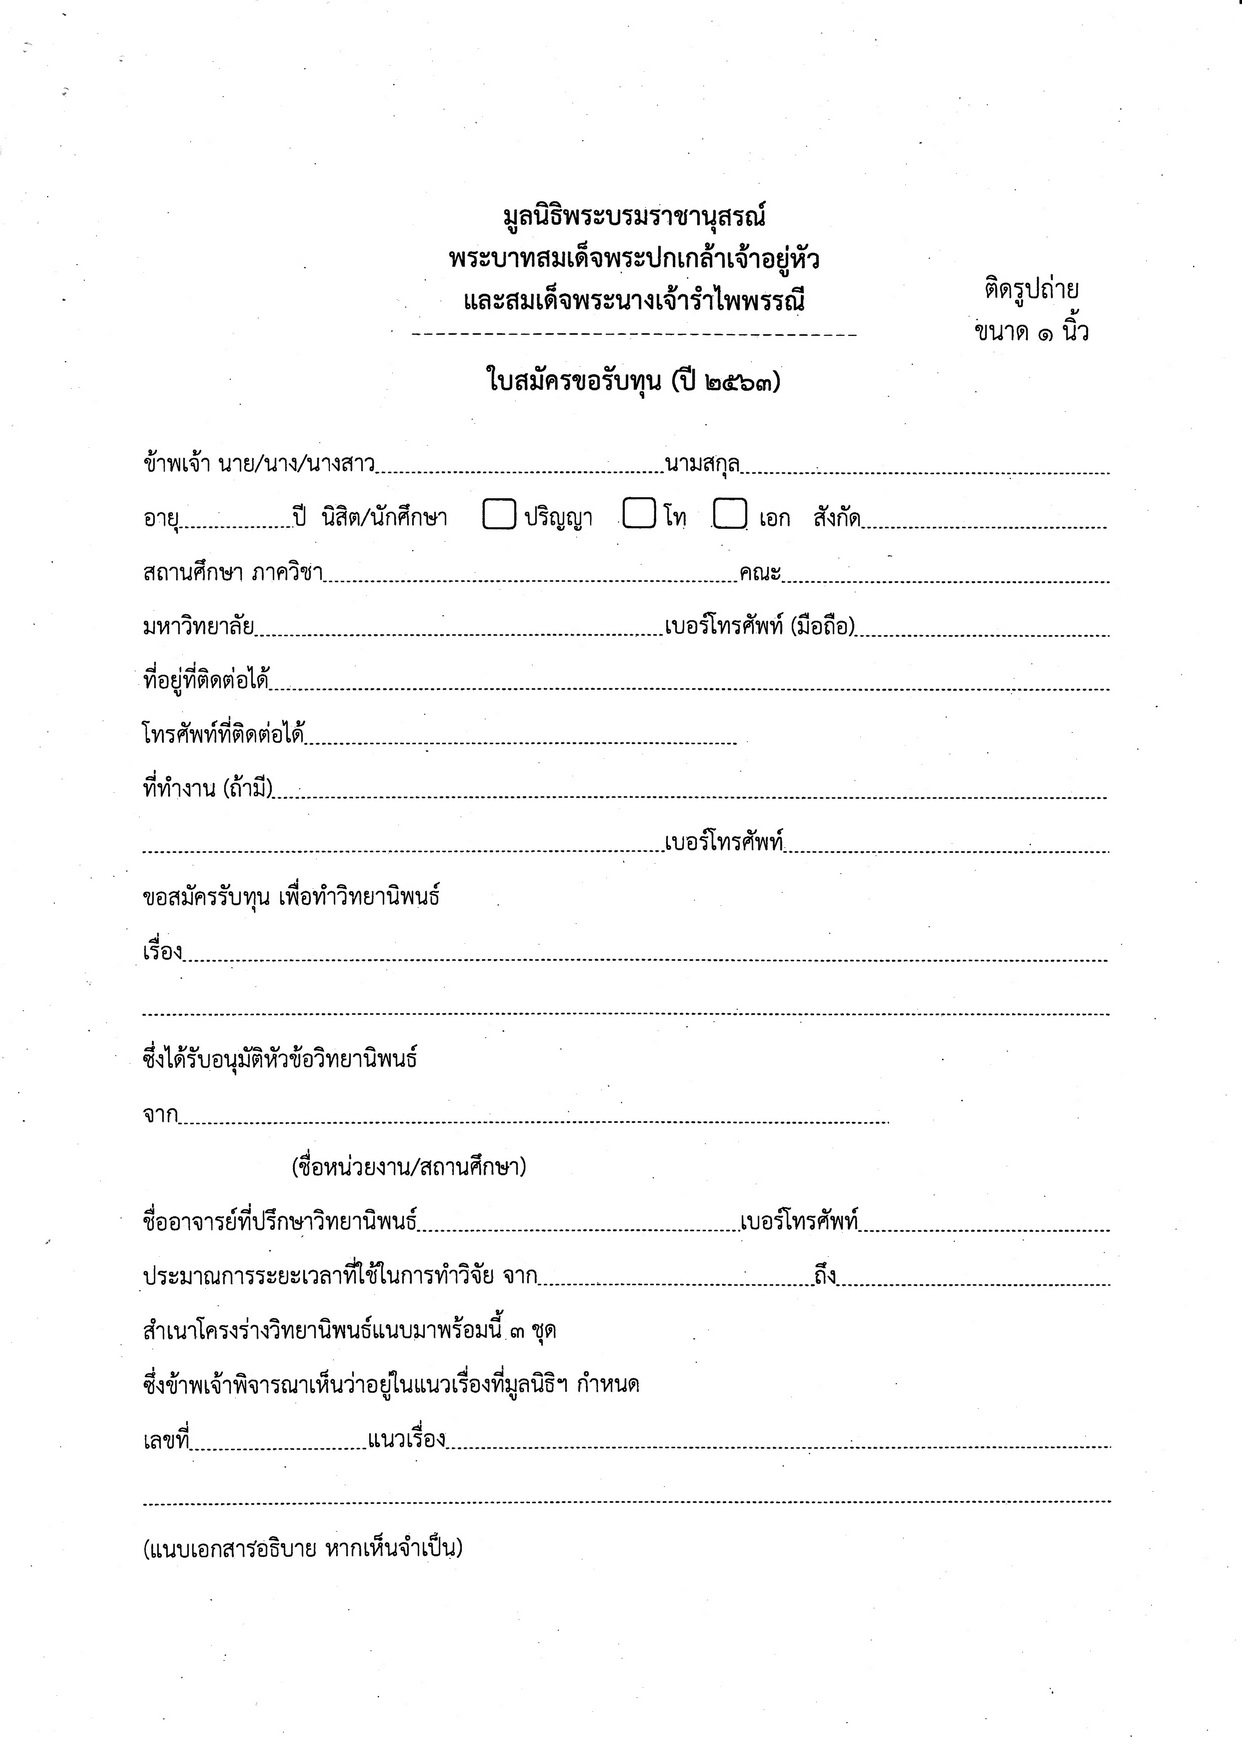 มูลนิธิพระบรมราชานุสรณ์
พระบาทสมเด็จพระปกเกล้าเจ้าอยู่หัว
และสมเด็จพระนางเจ้ารำไพพรรณี
ติดรูปถ่าย
ขนาด ๑ นิ้ว
ใบสมัครขอรับทุน (ปี ๒๕๖๓)
ข้าพเจ้า นาย/นาง/นางสาว นามสกุล
อายุ ปี นิสิต/นักศึกษา ปริญญา โท เอก สังกัด
สถานศึกษา ภาควิชา คณะ
มหาวิทยาลัย เบอร์โทรศัพท์ (มือถือ)
ที่อยู่ที่ติดต่อได้
โทรศัพท์ที่ติดต่อได้
ที่ทำงาน (ถ้ามี)
เบอร์โทรศัพท์
ขอสมัครรับทุน เพื่อทำวิทยานิพนธ์
เรื่อง
ซึ่งได้รับอนุมัติหัวข้อวิทยานิพนธ์
จาก
(ชื่อหน่วยงาน/สถานศึกษา)
ชื่ออาจารย์ที่ปรึกษาวิทยานิพนธ์ เบอร์โทรศัพท์
ประมาณการระยะเวลาที่ใช้ในการทำวิจัย จาก ถึง
สำเนาโครงร่างวิทยานิพนธ์แนบมาพร้อมนี้ ๓ ชุด
ซึ่งข้าพเจ้าพิจารณาเห็นว่าอยู่ในแนวเรื่องที่มูลนิธิฯ กำหนด
เลขที่ แนวเรื่อง
(แนบเอกสารอธิบาย หากเห็นจำเป็น)